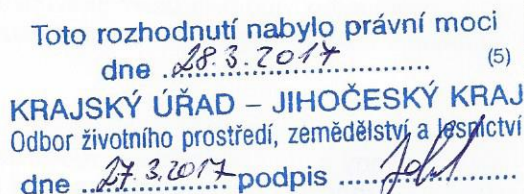 Toto rozhodnutí nabylo právní moci
dne 28.3.2017 (5)
KRAJSKÝ ÚŘAD – JIHOČESKÝ KRAJ
Odbor životního prostředí, zemědělství a lesnictví
dne 27.3.2017 podpis